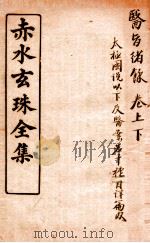 醫旨緒餘 卷上下
太極圖說以下及醫案
赤水玄珠全集